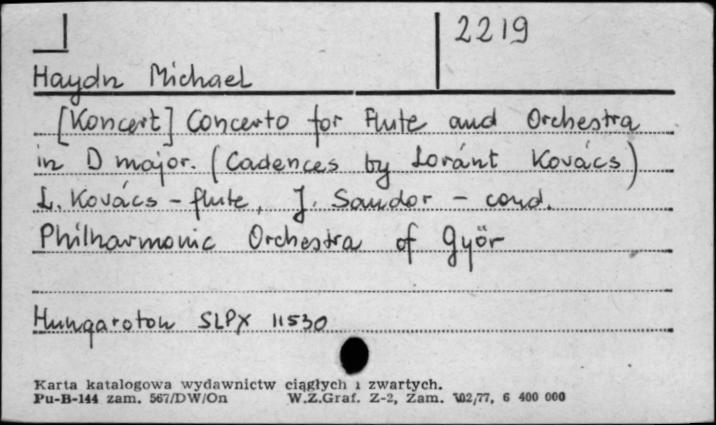 2219
Haydn Michael
[Koncert] Concerto for Flute and Orchestra
in D major. (Cadences by Loránt Kovács)
L. Kovács - flute, J. Sandor - cond.
Philharmonic Orchestra of Györ
Hungaroton SLPX 11530
Karta katalogowa wydawnictw ciągłych i zwartych.
Pu-B-144 zam. 567/DW/On W.Z.Graf. Z-2, Zam. 102/77, 6 400 000